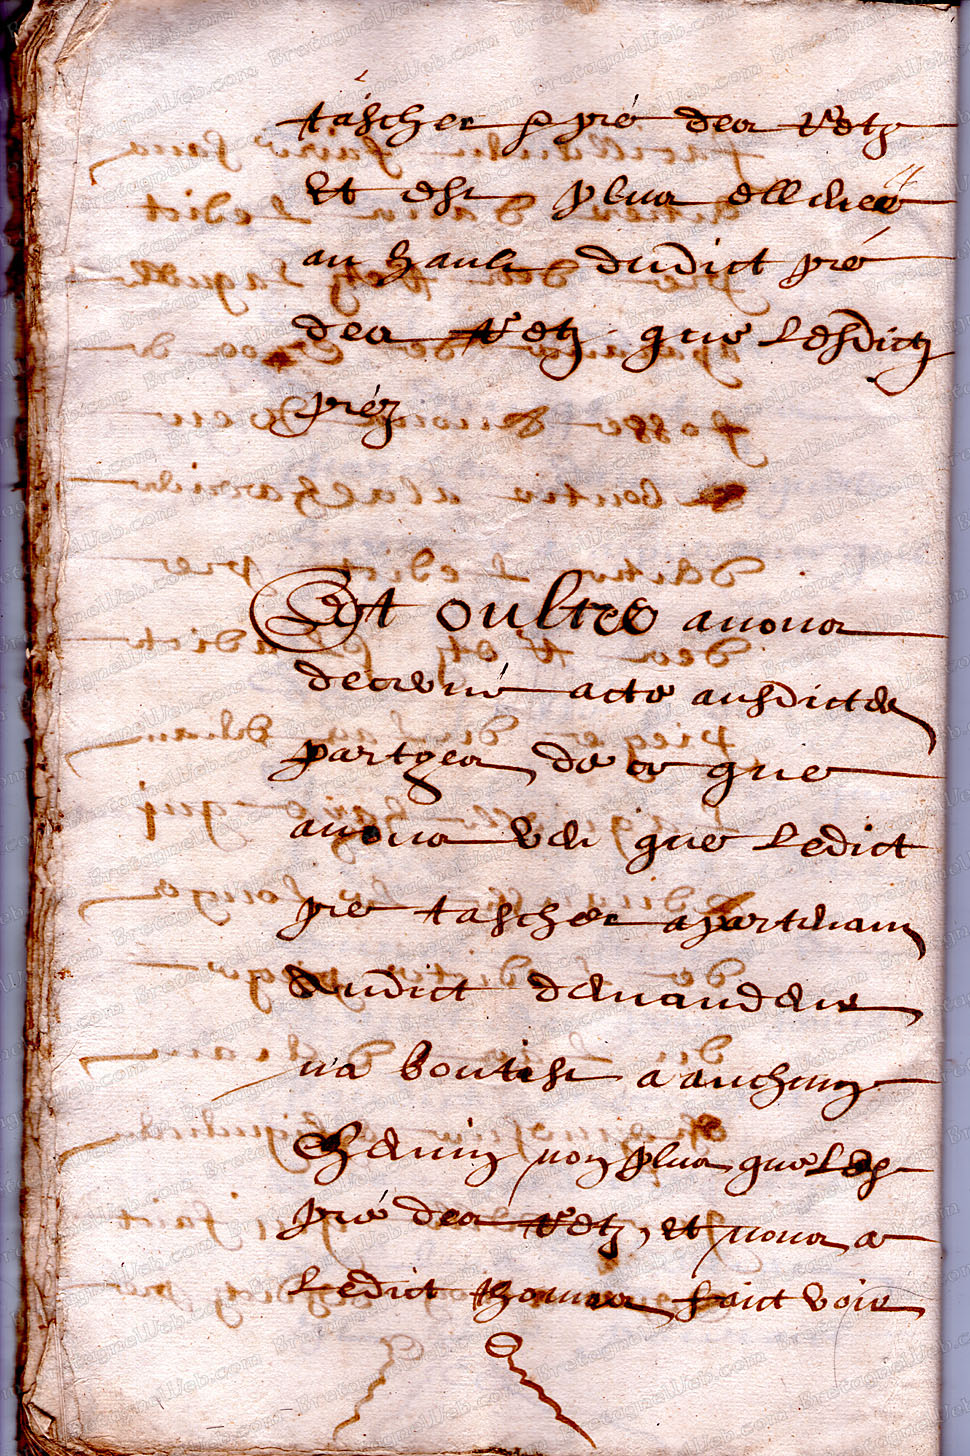 tascher & pré des Vetz
Et est plus ellevée
au hault dudict pré
des Vetz que Lesdictz
préz
Et oultre avons
decerné acte ausdictes
partyes de ce que
avons veu que Ledict
pré tascher apartenant
audict demandeur
n'a boutist a auchung
chemin non plus que Les
pré des Vetz, Et nous a
Ledict Thomas faict voir